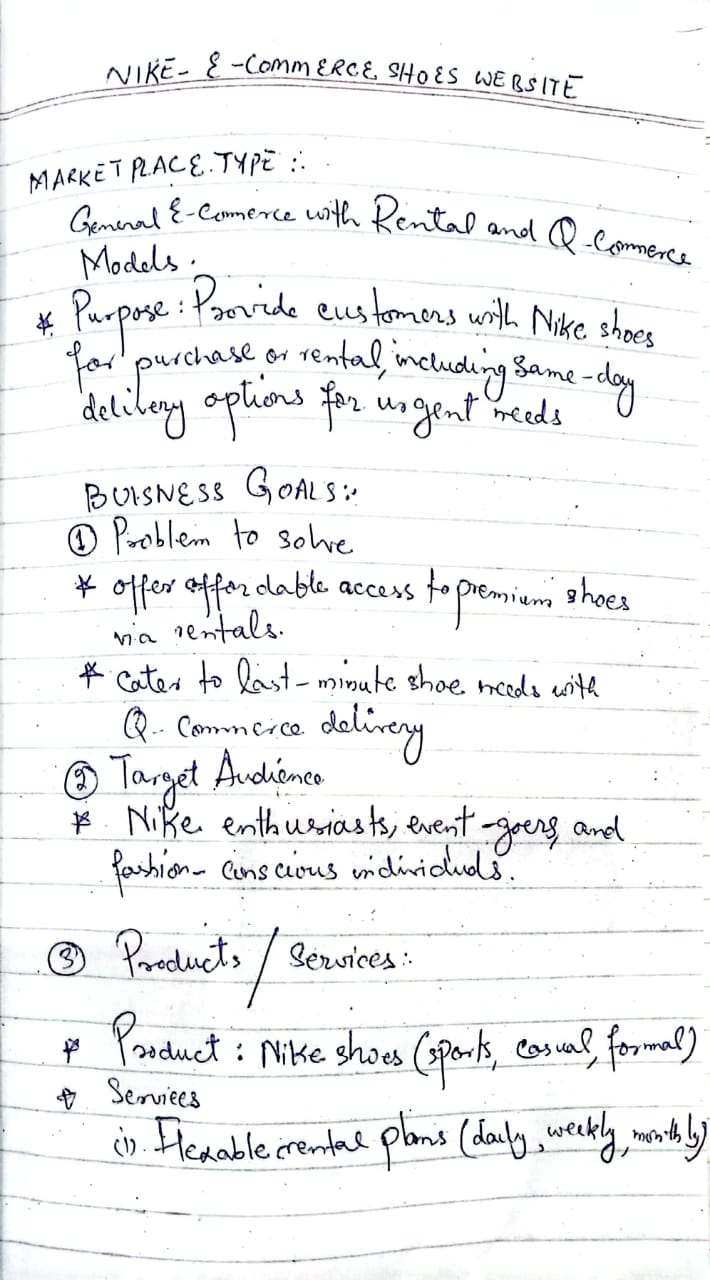 NIKE - E-COMMERCE SHOES WEBSITE
MARKET PLACE TYPE :.
General E-Comerce with Rental and Q-Commerce
Models.
* Purpose : Provide customers with Nike shoes
for purchase or rental, including Same-day
delivery options for urgent needs
BUISNESS GOALS :.
① Problem to solve
* offer affordable access to premium shoes
via rentals.
* Cater to last-minute shoe needs with
Q-Commerce delivery
② Target Audience
* Nike enthusiasts, event-goers, and
fashion-conscious individuls.
③ Products / Services :.
* Product : Nike shoes (sports, casual, formal)
* Services
(i). Flexable rental plans (daily, weekly, monthly)